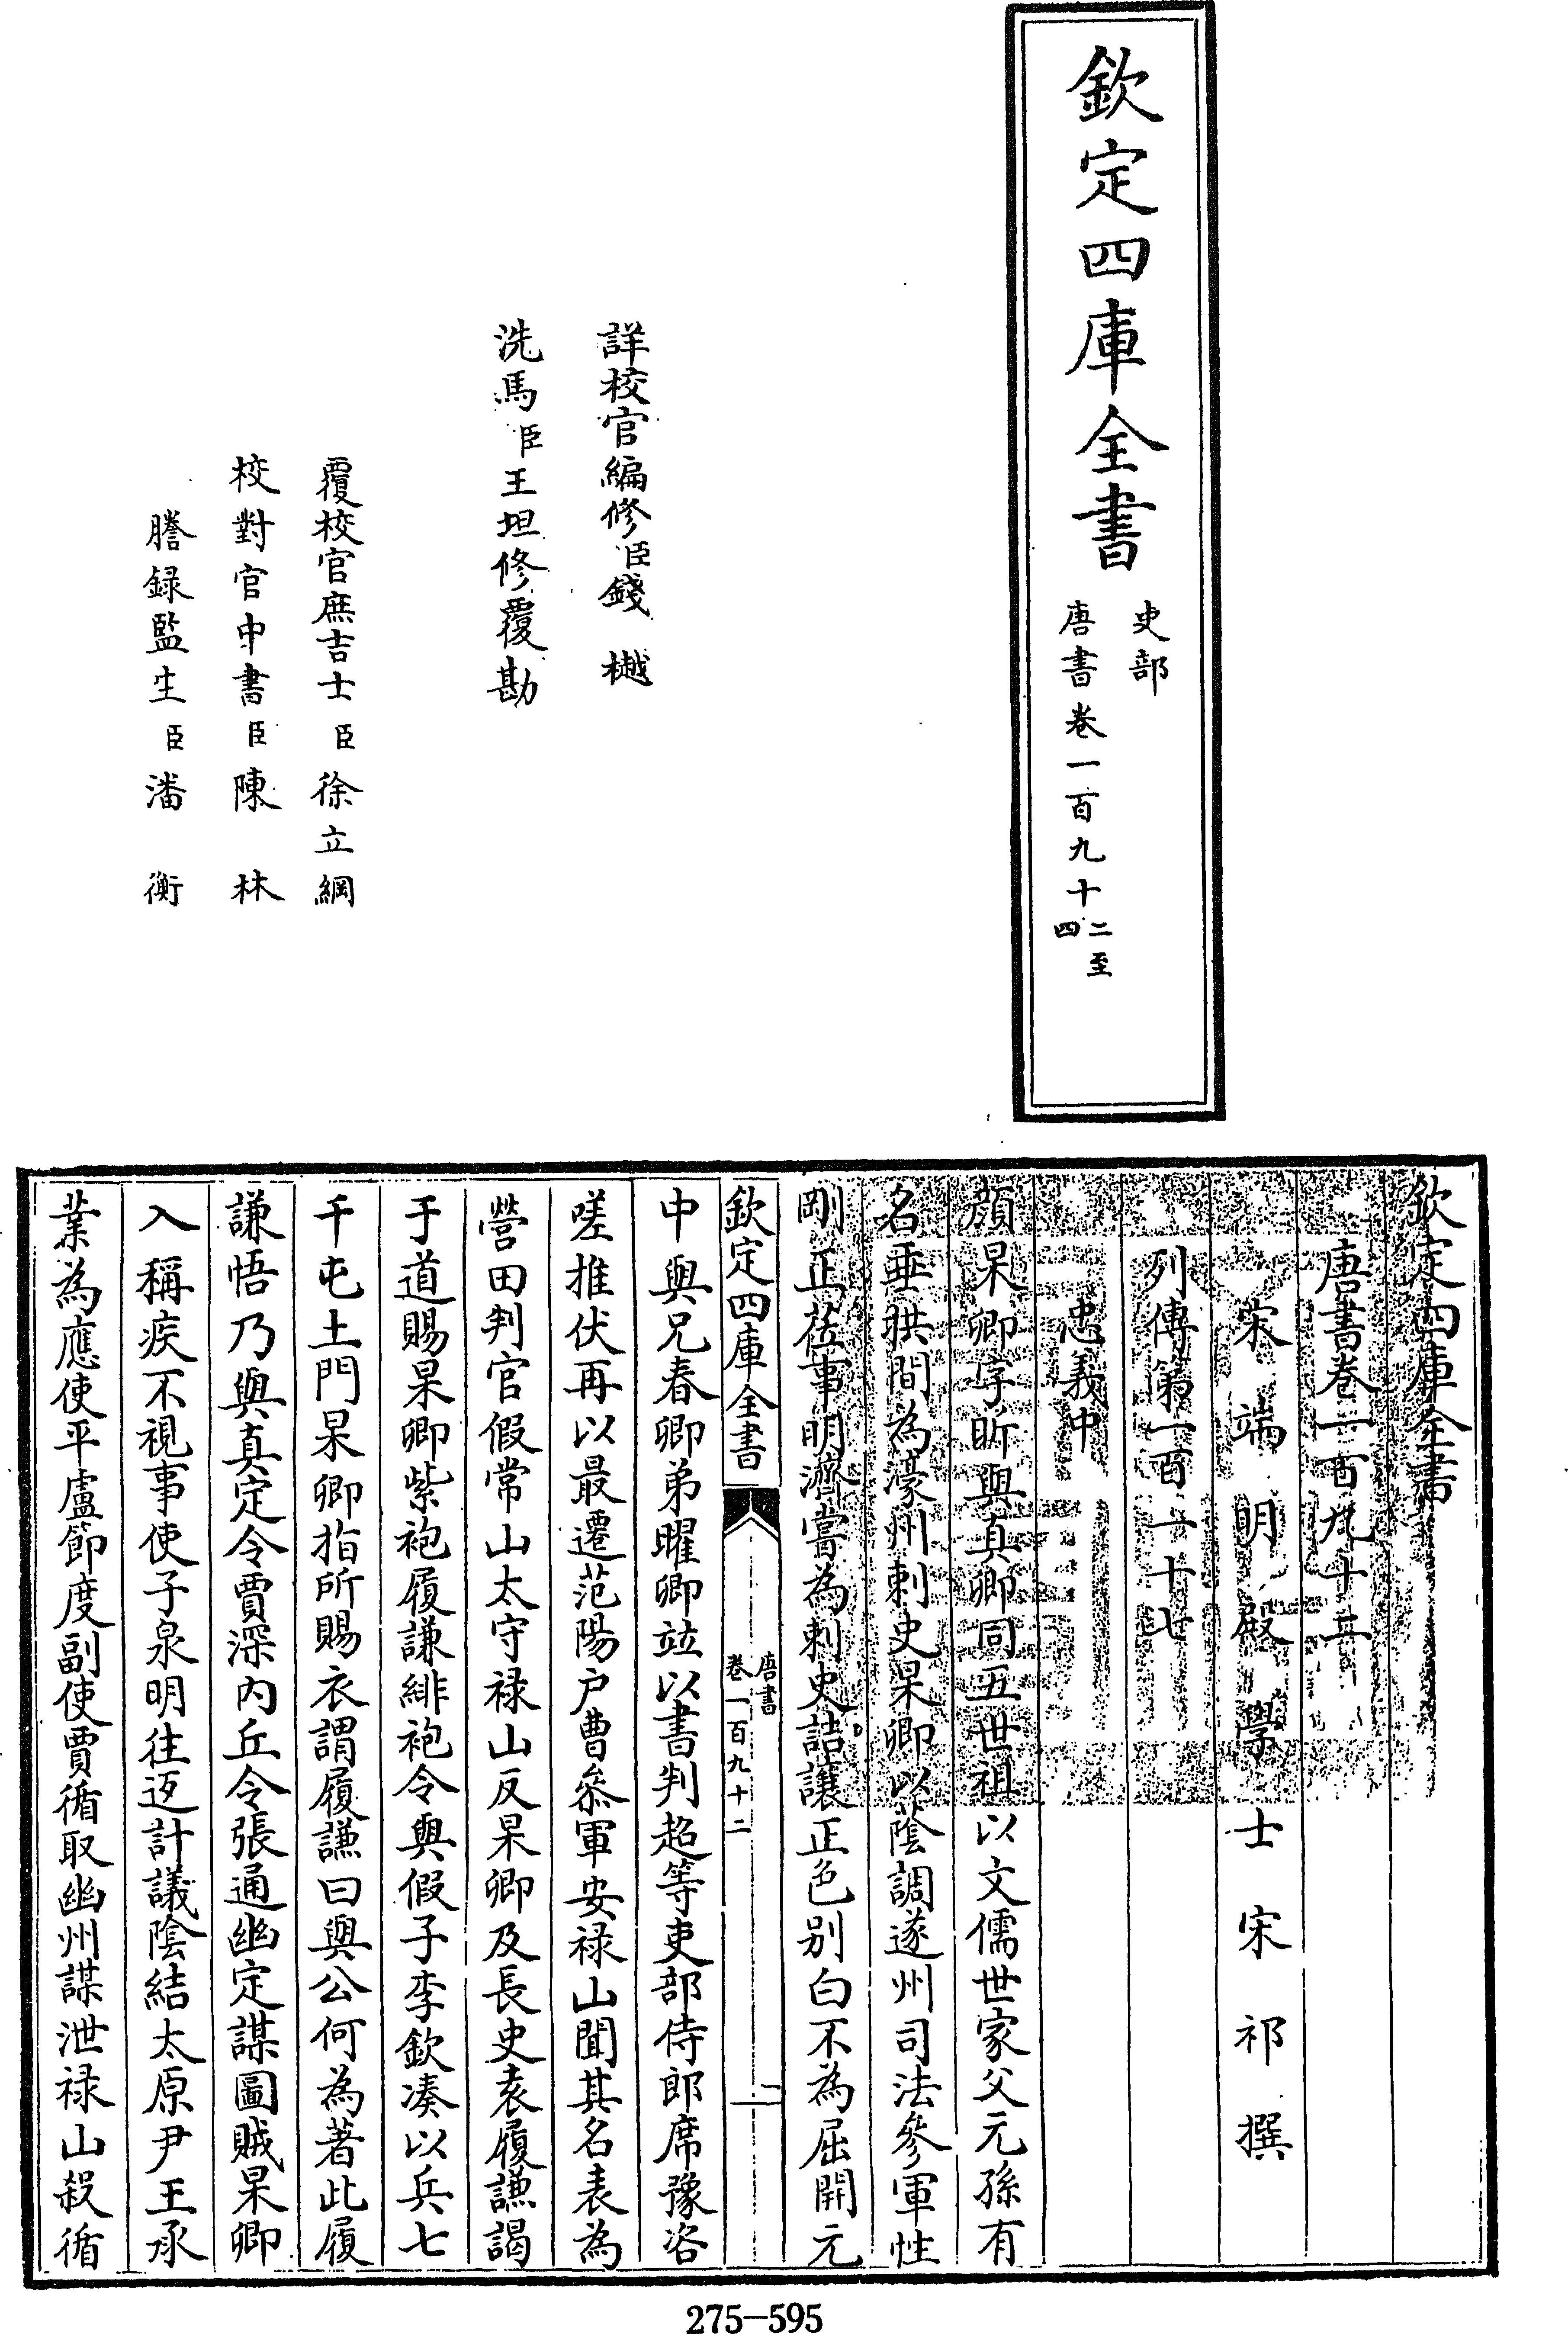 欽定四庫全書
史部
唐書卷一百九十二至四
詳校官編修臣錢樾
洗馬臣王坦修覆勘
覆校官庶吉士臣徐立綱
校對官中書臣陳林
謄錄監生臣潘衡
欽定四庫全書
唐書卷一百九十二
宋端明殿學士宋祁撰
列傳第一百一十七
忠義中
顔杲卿字昕與真卿同五世祖以文儒世家父元孫有
名垂拱間為濠州刺史杲卿以蔭調遂州司法參軍性
剛正莅事明濟嘗為刺史詰讓正色别白不為屈開元
欽定四庫全書
唐書
卷一百九十二
一
中與兄春卿弟曜卿竝以書判超等吏部侍郎席豫咨
嗟推伏再以最遷范陽户曹叅軍安禄山聞其名表為
營田判官假常山太守禄山反杲卿及長史袁履謙謁
于道賜杲卿紫袍履謙緋袍令與假子李欽湊以兵七
千屯土門杲卿指所賜衣謂履謙曰與公何為著此履
謙悟乃與真定令賈深内丘令張通幽定謀圖賊杲卿
入稱疾不視事使子泉明往返計議陰結太原尹王承
業為應使平盧節度副使賈循取幽州謀泄禄山殺循
275-595